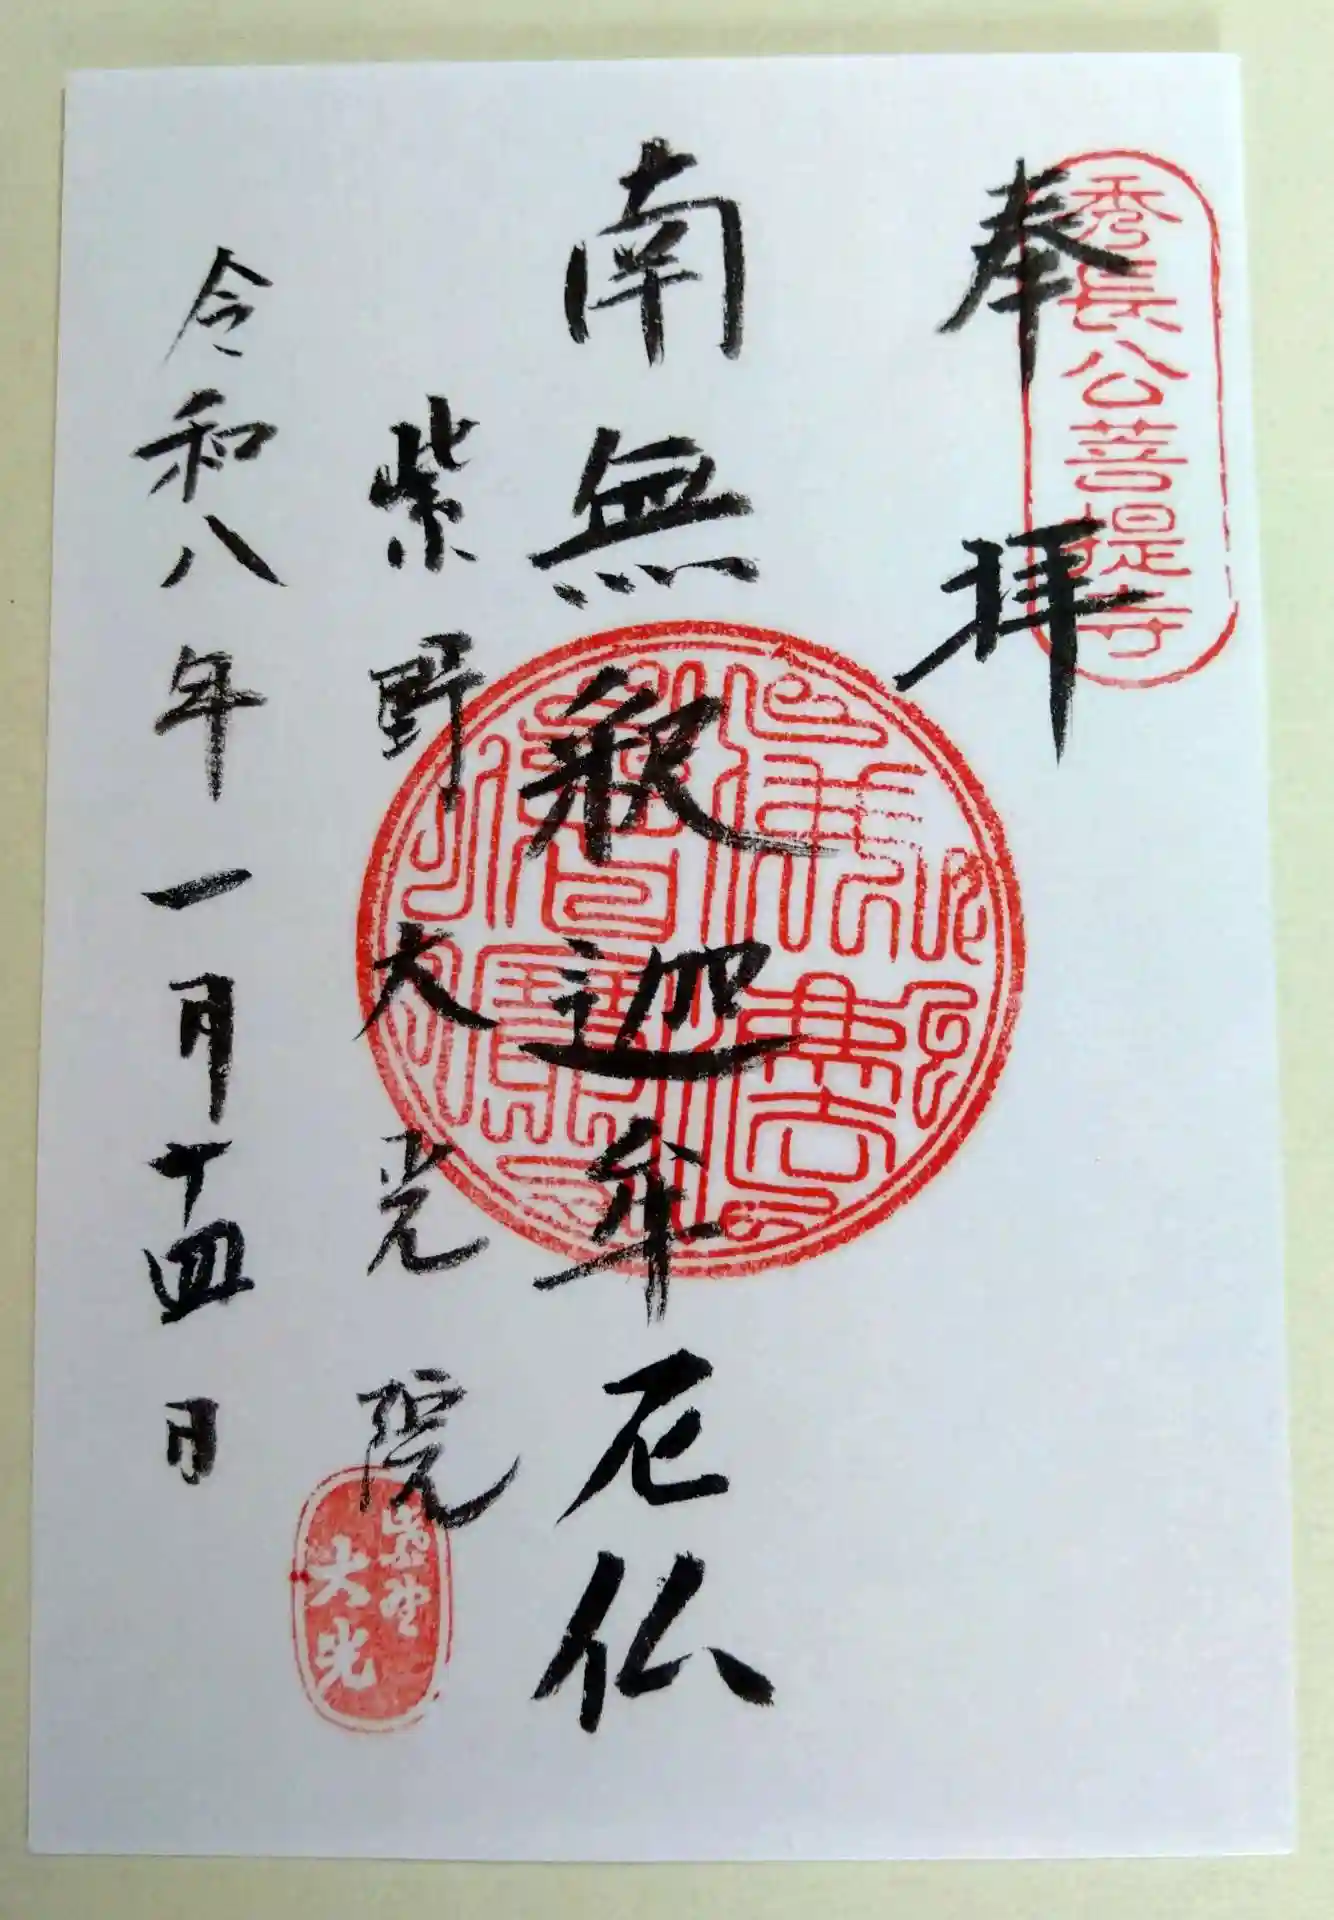 秀長公菩提寺
奉拝
南無釈迦牟尼仏
紫野大光院
紫野
大光
令和八年一月十四日